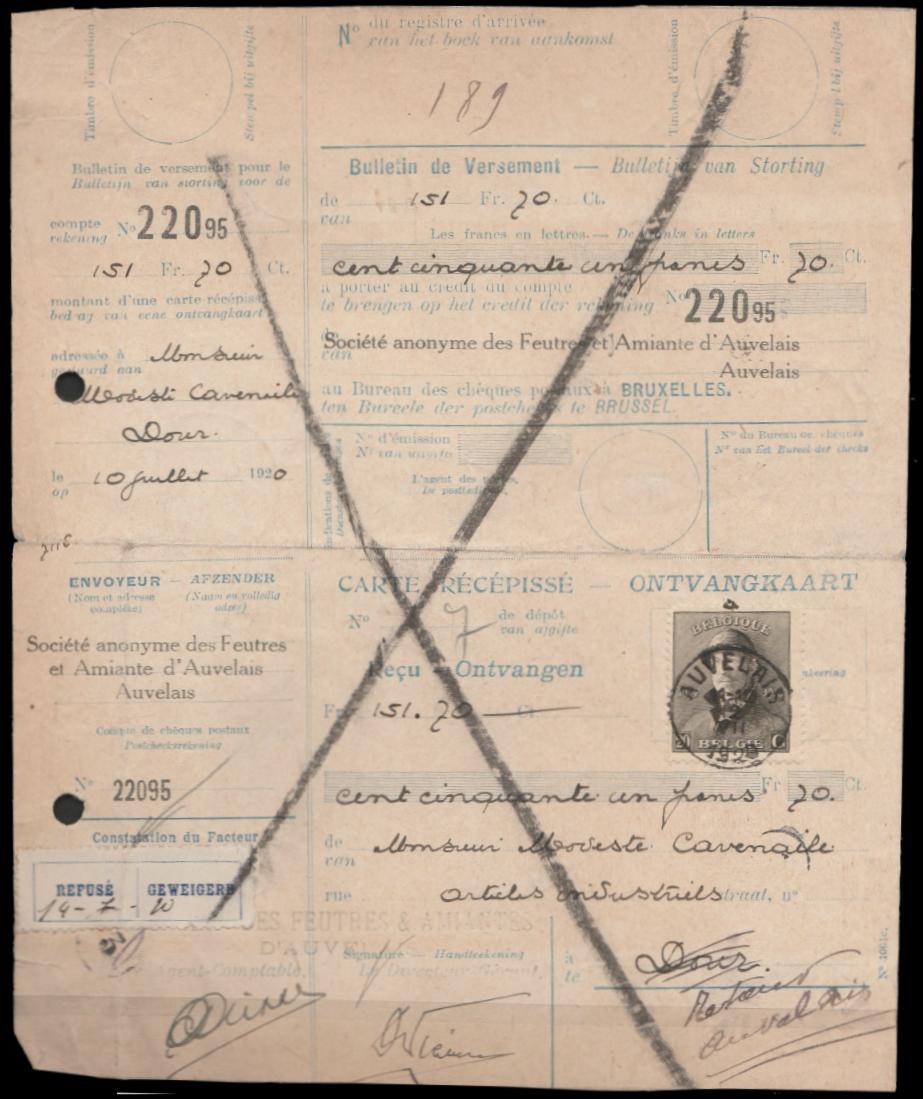 Timbre d'émission
Stempel bij uitgifte
Nº du registre d'arrivée
van het boek van aankomst
189
Timbre d'émission
Stempel bij uitgifte
Bulletin de versement pour le
Bulletijn van storting voor de
compte
rekening Nº 22095
151 Fr. 70 Ct.
montant d'une carte-récépissé
bedrag van eene ontvangkaart
adressée à Monsieur
gestuurd aan
Modeste Cavenaile
Dour.
le 10 Juillet 1920
op
Bulletin de Versement — Bulletijn van Storting
de 151 Fr. 70. Ct.
van
Les francs en lettres. — De franks in letters
cent cinquante un francs Fr. 70. Ct.
à porter au crédit du compte
te brengen op het credit der rekening Nº 22095
de
van
Société anonyme des Feutres et Amiante d'Auvelais
Auvelais
au Bureau des chèques postaux à BRUXELLES.
ten Bureele der postchecks te BRUSSEL.
Nº d'émission
Nr van uitgifte
L'agent des postes,
De postbediende,
Nº du Bureau de chèques
Nr van het Bureel der checks
2116
ENVOYEUR — AFZENDER
(Nom et adresse complète) (Naam en volledig adres)
Société anonyme des Feutres
et Amiante d'Auvelais
Auvelais
Compte de chèques postaux
Postcheckrekening
Nº 22095
Constatation du Facteur
REFUSÉ GEWEIGERD
14-7-20
CARTE RÉCÉPISSÉ — ONTVANGKAART
Nº 7 de dépôt
van afgifte
Reçu — Ontvangen
Fr. 151.70 Ct.
BELGIQUE
BELGIE
20 C
AUVELAIS
1920
cent cinquante un francs Fr 70. Ct.
de Monsieur Modeste Cavenaile
van
rue articles industriels straat, nº
DES FEUTRES & AMIANTES
D'AUVELAIS
Agent-Comptable,
Signature — Handteekening
Le Directeur-Gérant,
à Dour.
te
Retour
Auvelais